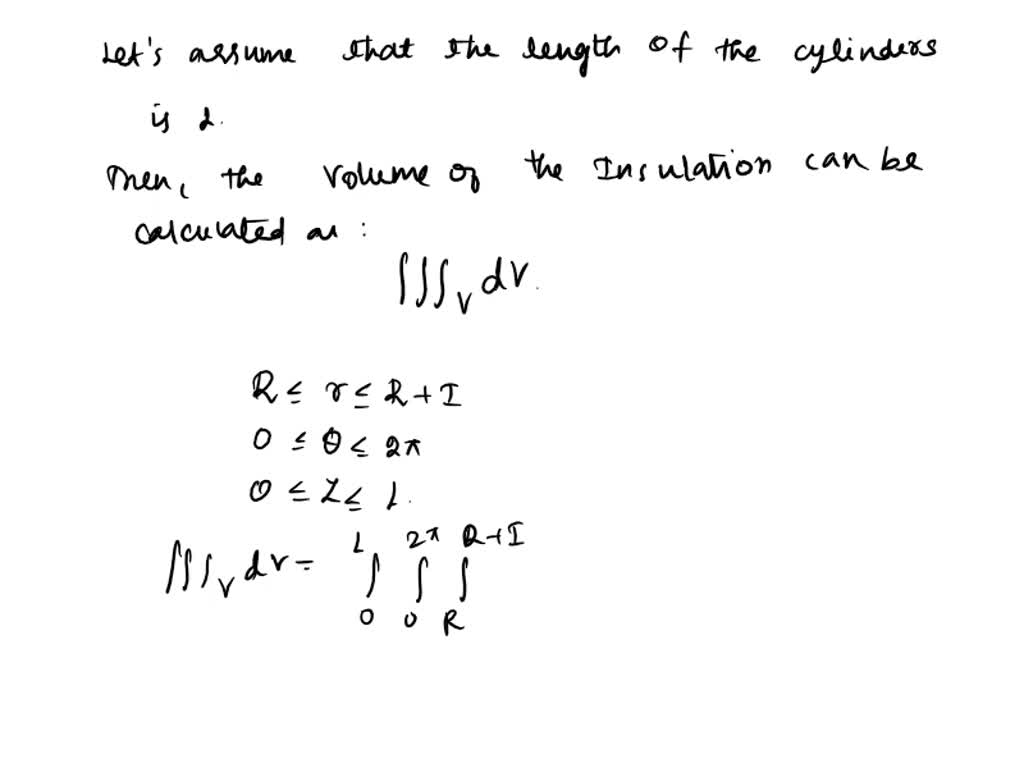 Let's assume that the length of the cylinders
is L.
Then, the volume of the Insulation can be
calculated as :
∫∫∫_V dV.
R ≤ r ≤ R + I
0 ≤ θ ≤ 2π
0 ≤ Z ≤ L.
∫∫∫_V dV = ∫_0^L ∫_0^2π ∫_R^R+I